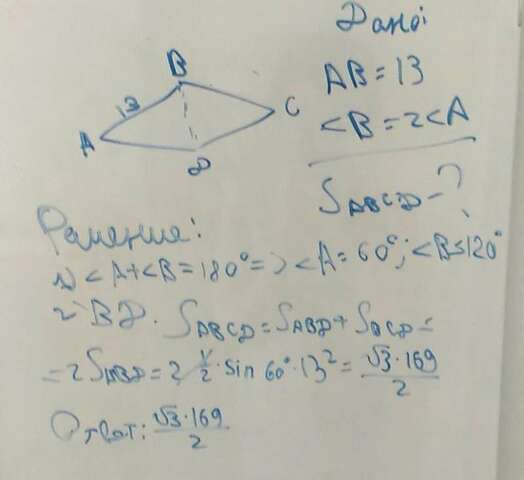 Дано:
AB = 13
<B = 2<A
S ABCD - ?
B
13
A
C
D
Решение:
1) <A+<B = 180° => <A = 60°; <B = 120°
2) BD. S ABCD = S ABD + S BCD =
= 2 S ABD = 2 1/2 · sin 60° · 13² = √3 · 169 / 2
Ответ: √3 · 169 / 2